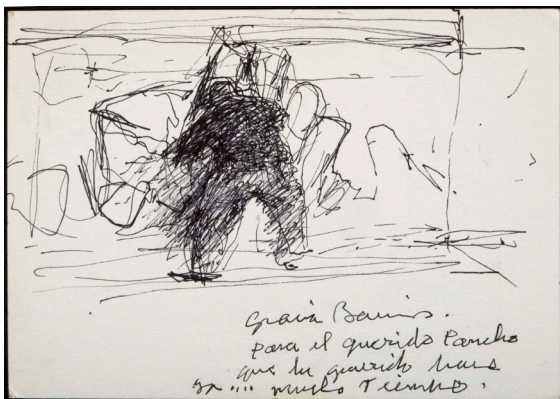 Gracia Barrios.
para el querido Pancho
que lo querido hace
ya .... mucho Tiempo.